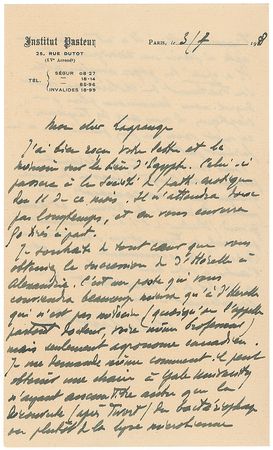 Institut Pasteur
25, RUE DUTOT
(XVe Arrondt)
PARIS, le 3/7 1928
TÉL.
SÉGUR 08-27
18-14
85-96
INVALIDES 18-99
Mon cher Lagrange
J'ai bien reçu votre lettre et la
mémoire sur le de d'Egypte. Celui-ci
passera à la Société de path. exotique
le 11 de ce mois. Il n'attendra donc
pas longtemps, et on vous enverra
50 tirés à part.
Je souhaite de tout cœur que vous
obteniez la succession de d'Hérelle à
Alexandrie. C'est un poste qui vous
conviendra beaucoup mieux qu'à d'Herelle
qui n'est pas médecin (quoiqu'on l'appelle
partout Docteur, voire même Professeur)
mais seulement agronome canadien.
Je me demande même comment il peut
obtenir une chaire à Yale University
n'ayant aucun titre autre que la
découverte (après Twort) du bactériophage
ou plutôt de la lyse microbienne